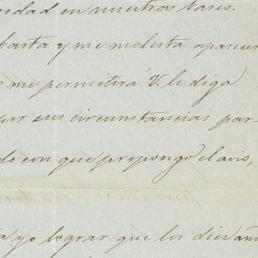 cidad en nuestros bases.
basta y me molesta aparecer
me permitirá V. le diga
por sus circunstancias par
do con que propongo el avis,
yo lograr que los diez añ